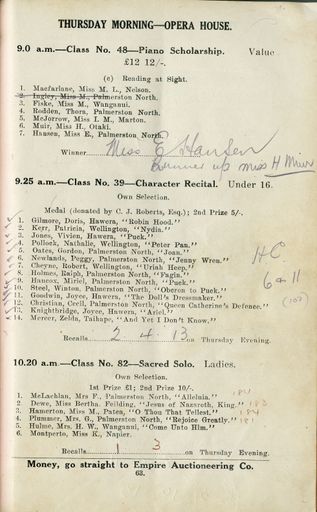 THURSDAY MORNING—OPERA HOUSE.
9.0 a.m.—Class No. 48—Piano Scholarship. Value
£12 12/-.
(c) Reading at Sight.
1. Macfarlane, Miss M. L., Nelson.
2. Ingley, Miss M., Palmerston North.
3. Fiske, Miss M., Wanganui.
4. Rodden, Thora, Palmerston North.
5. McJorrow, Miss I. M., Marton.
6. Muir, Miss H., Otaki.
7. Hansen, Miss E., Palmerston North.
Winner Miss E Hansen
Runner up Miss H Muir
9.25 a.m.—Class No. 39—Character Recital. Under 16.
Own Selection.
Medal (donated by C. J. Roberts, Esq.); 2nd Prize 5/-.
1. Gilmore, Doris, Hawera, "Robin Hood."
2. Kerr, Patricia, Wellington, "Nydia."
3. Jones, Vivien, Hawera, "Puck."
4. Pollock, Nathalie, Wellington, "Peter Pan."
5. Oates, Gordon, Palmerston North, "Joan."
6. Newlands, Peggy, Palmerston North, "Jenny Wren."
7. Cheyne, Robert, Wellington, "Uriah Heep."
8. Holmes, Ralph, Palmerston North, "Fagin."
9. Hancox, Miriel, Palmerston North, "Puck."
10. Steel, Winton, Palmerston North, "Oberon to Puck."
11. Goodwin, Joyce, Hawera, "The Doll's Dressmaker."
12. Christina, Cecil, Palmerston North, "Queen Catherine's Defence."
13. Knightbridge, Joyce, Hawera, "Ariel."
14. Mercer, Zelda, Taihape, "And Yet I Don't Know."
HC
6 & 11
Recalls 2 4 13 on Thursday Evening.
10.20 a.m.—Class No. 82—Sacred Solo. Ladies.
Own Selection.
1st Prize £1; 2nd Prize 10/-.
1. McLachlan, Mrs F., Palmerston North, "Alleluia."
2. Dewe, Miss Bertha, Feilding, "Jesus of Nazareth, King." 183
3. Hamerton, Miss M., Patea, "O Thou That Tellest." 184
4. Plummer, Mrs. G., Palmerston North, "Rejoice Greatly."
5. Hulme, Mrs. H. W., Wanganui, "Come Unto Him."
6. Montperto, Miss K., Napier.
Recalls 1 3 on Thursday Evening.
Money, go straight to Empire Auctioneering Co.
63.